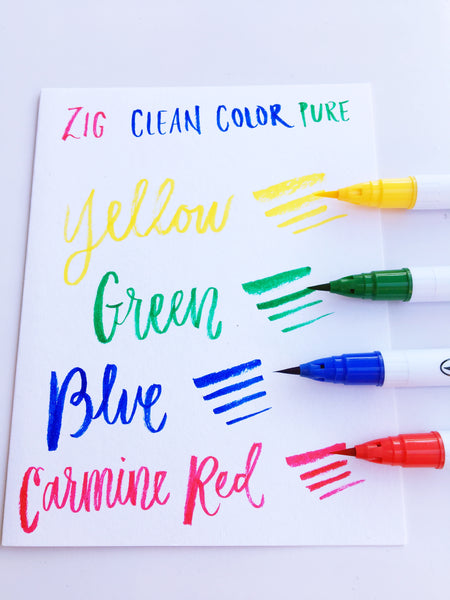 ZIG CLEAN COLOR PURE
Yellow
Green
Blue
Carmine Red